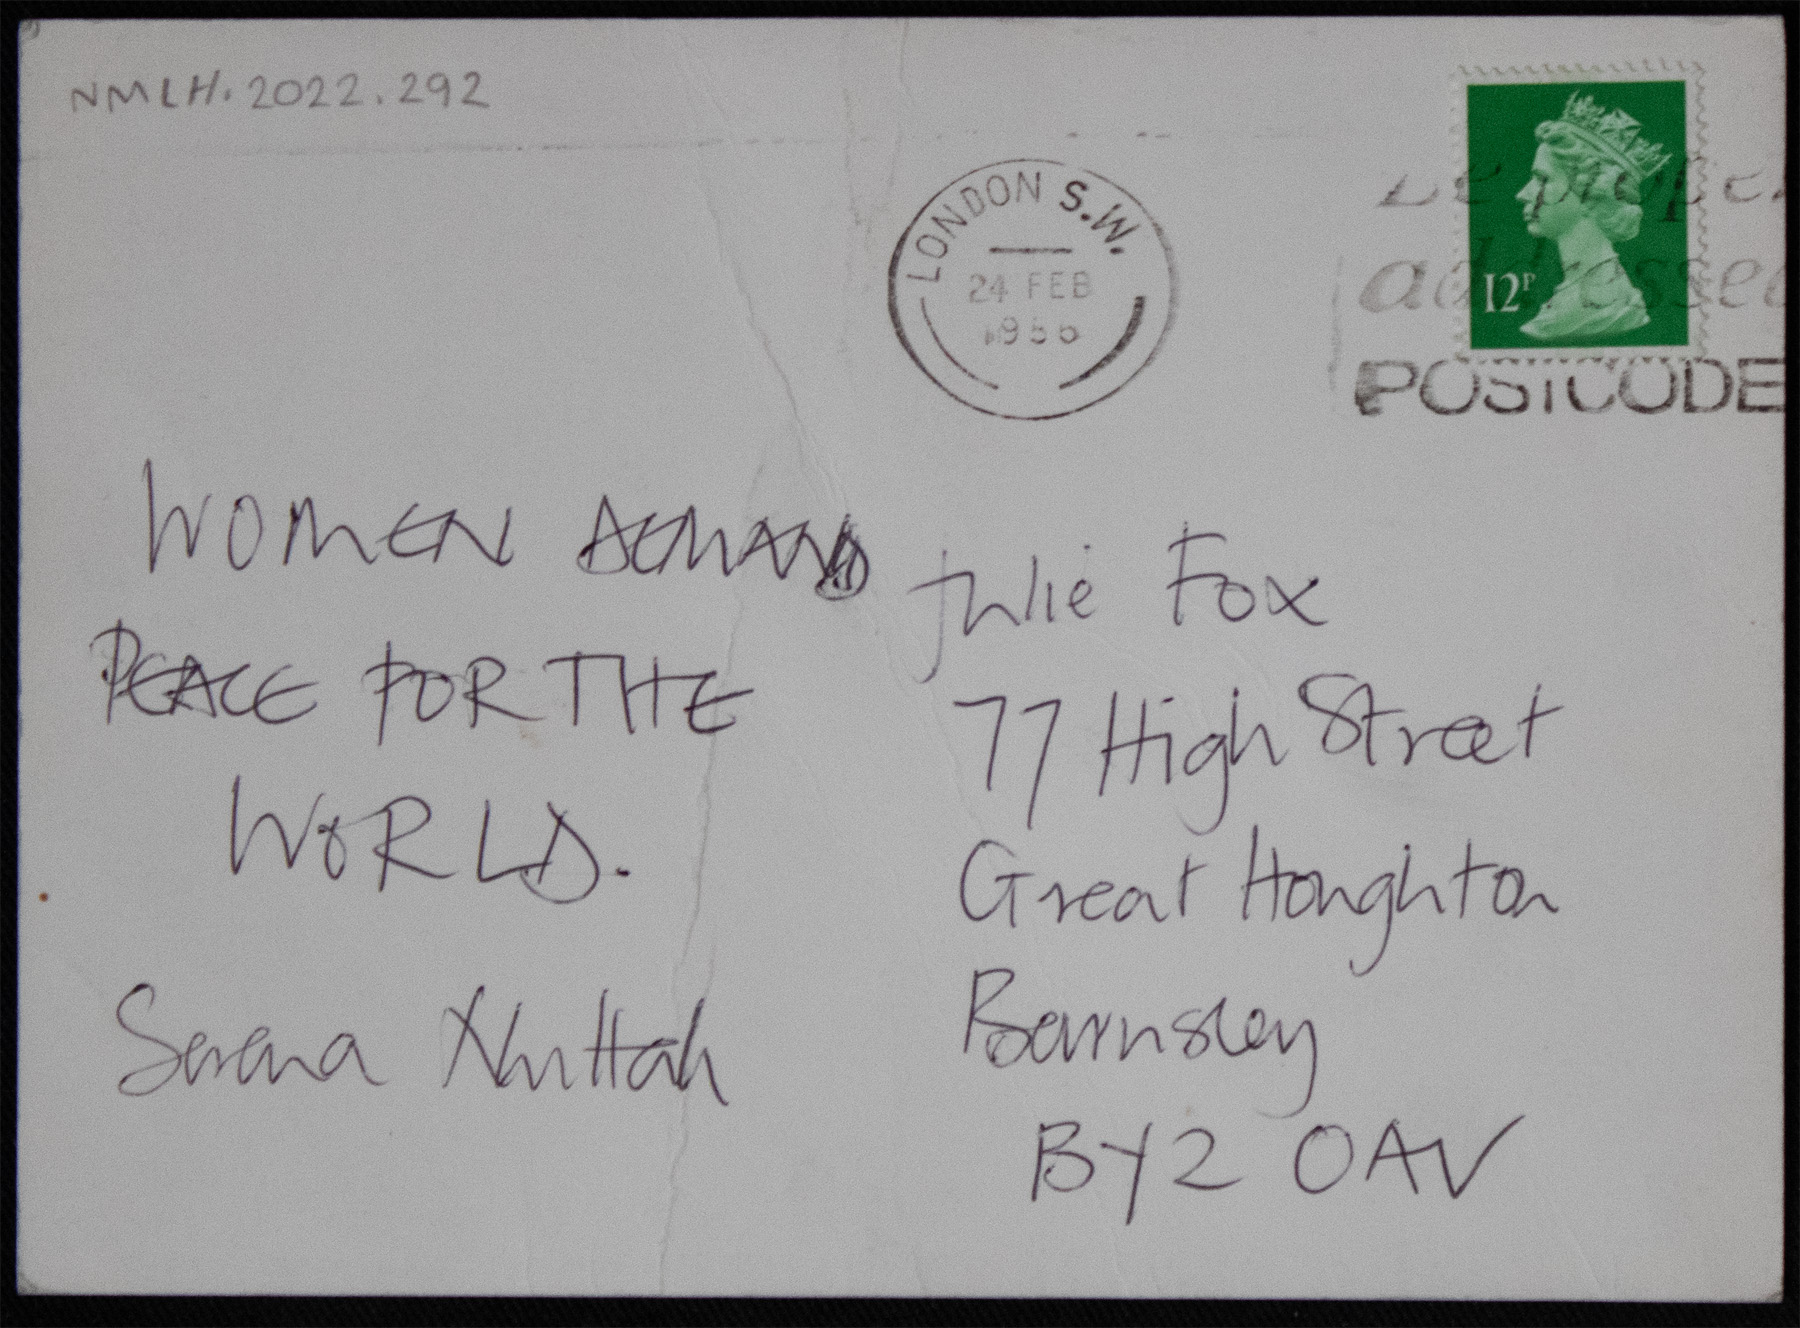 NMLH.2022.292
LONDON S.W.
24 FEB
be prope
addressed
POSTCODE
12P
WOMEN DEMAND
PEACE FOR THE
WORLD.
Serena
Julie Fox
77 High Street
Great Houghton
Barnsley
BY2 OAV